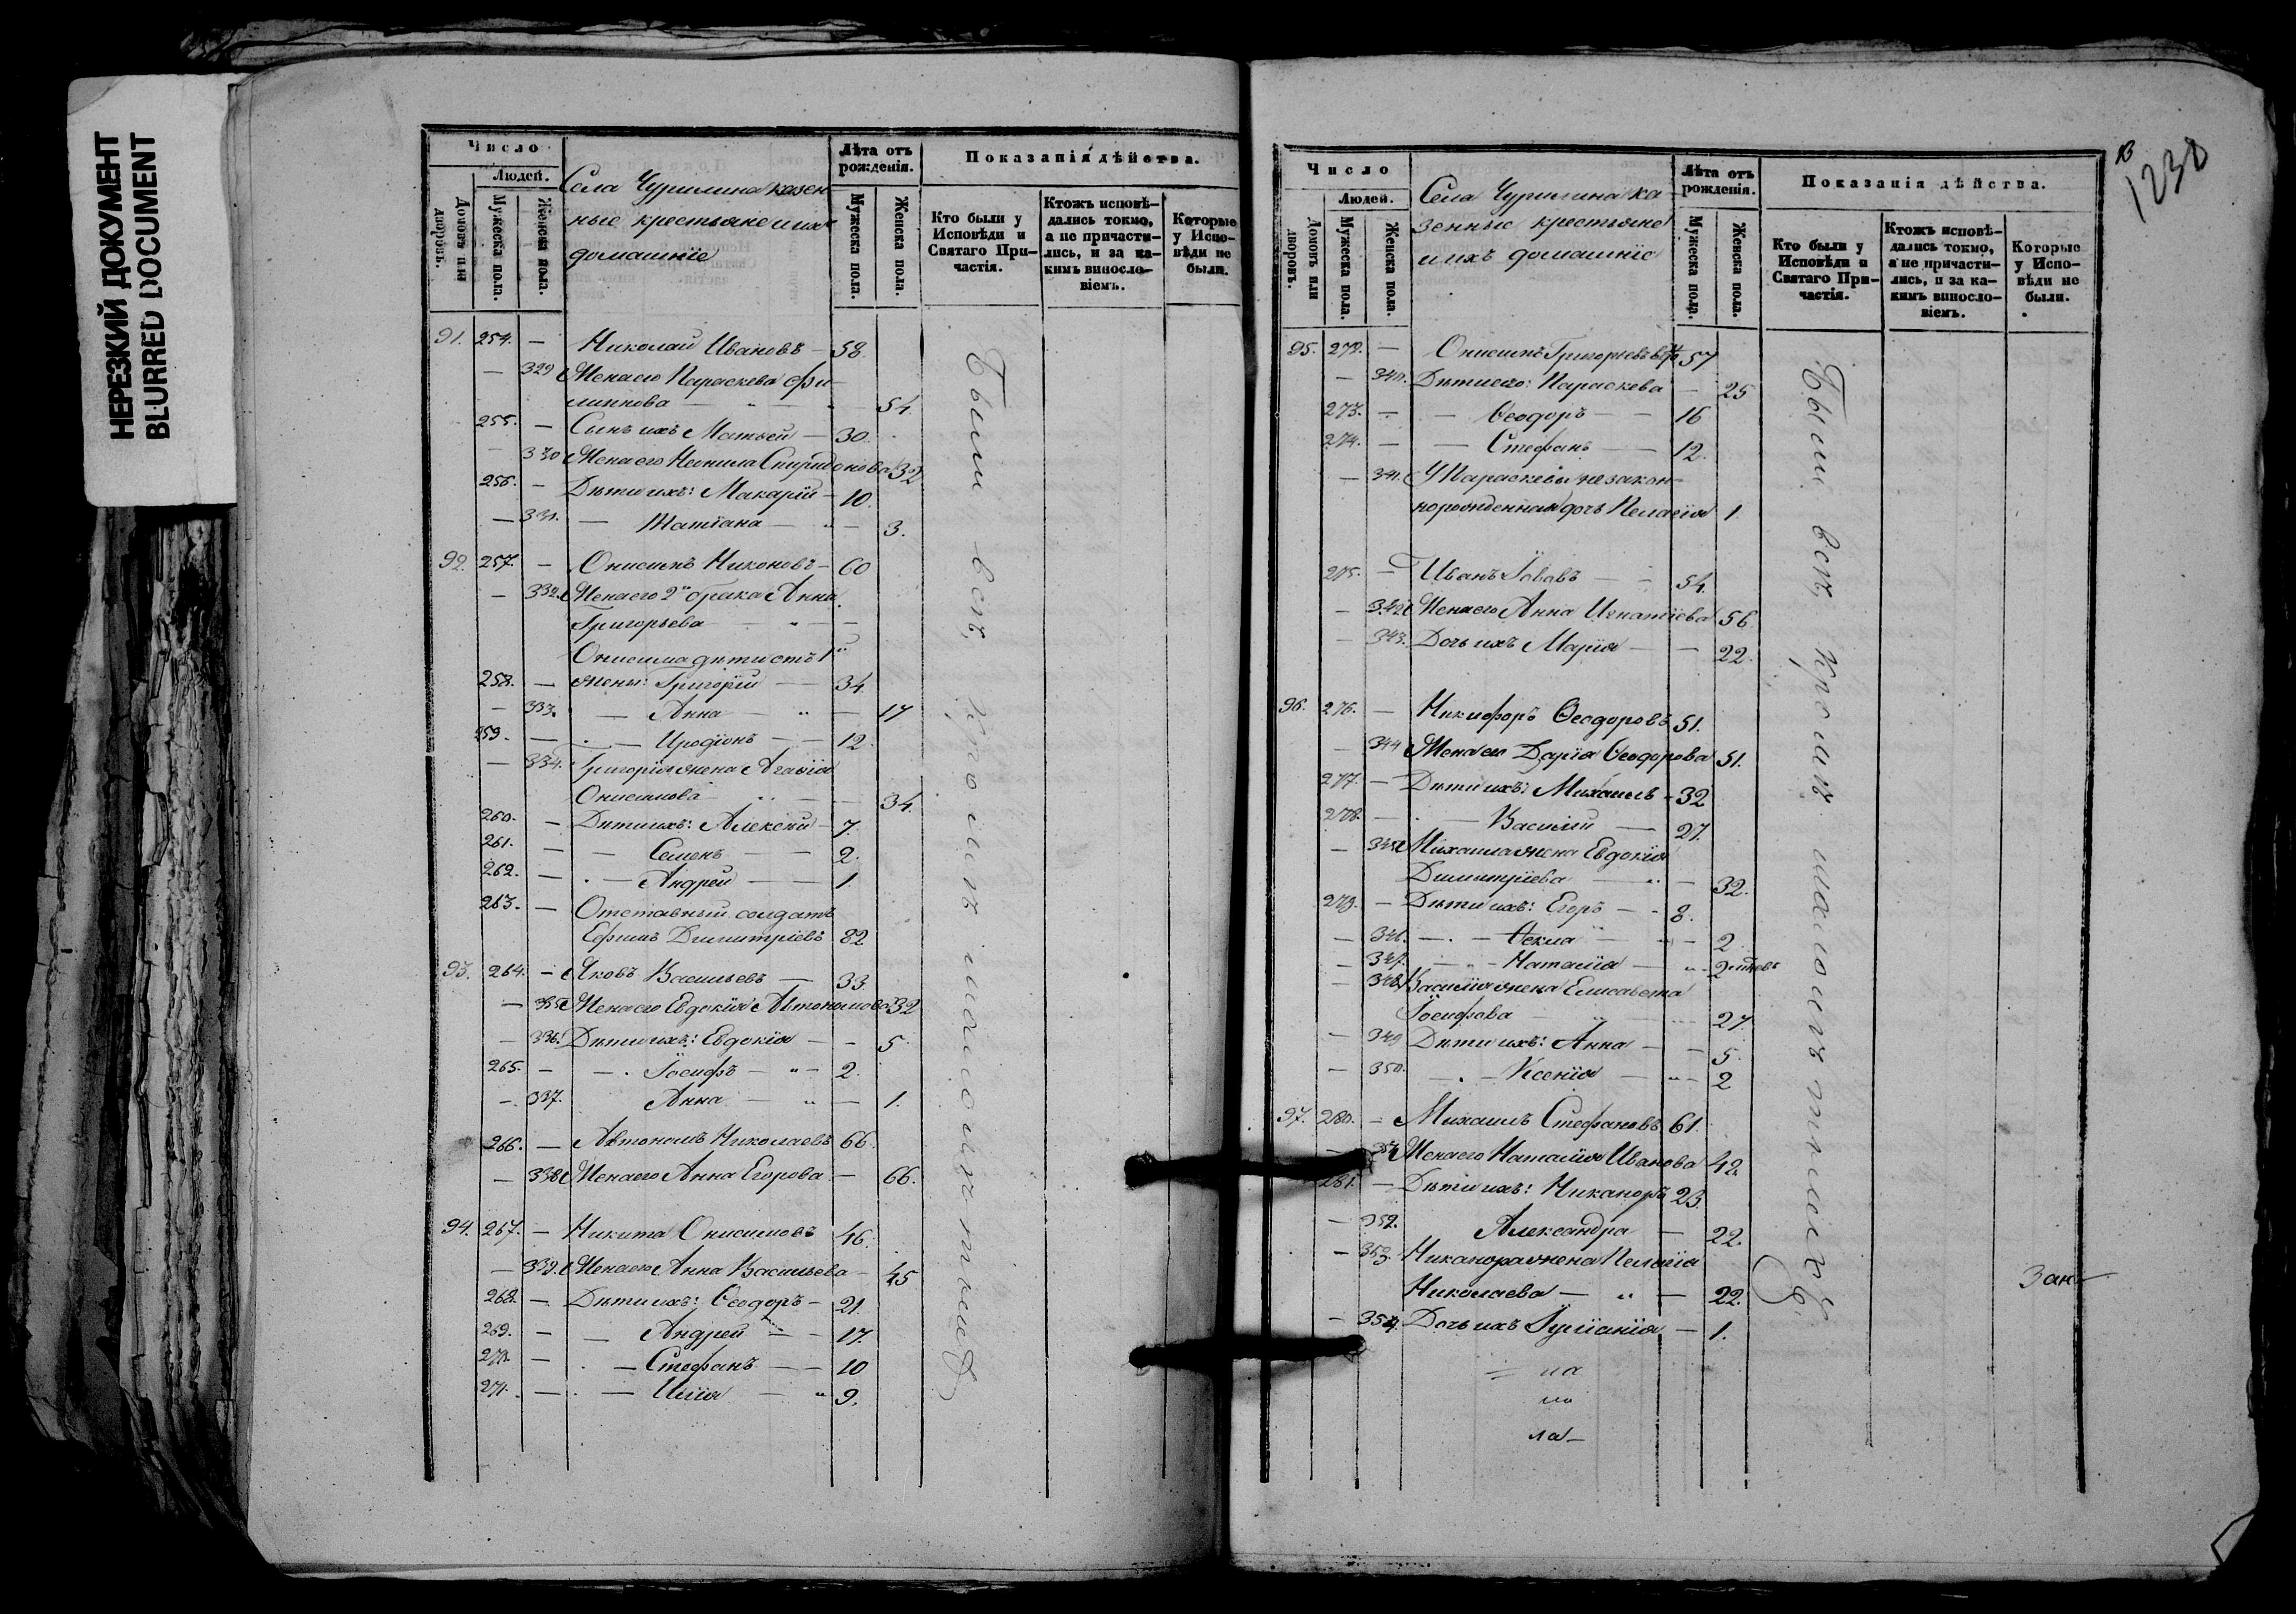 НЕРЕЗКИЙ ДОКУМЕНТ
BLURRED DOCUMENT
Число
Людей.
Домовъ или дворовъ.
Мужеска пола.
Женска пола.
Села Чурилина казен
ные крестьяне и ихъ
домашніе
Лѣта отъ рожденія.
Мужеска пола.
Женска пола.
Показанія дѣйства.
Кто были у Исповѣди и Святаго Причастія.
Ктожъ исповѣдались токмо, а не причастились, и за какимъ винословіемъ.
Которые у Исповѣди не были.
91. 254. — Николай Ивановъ — 58.
— 329 Жена его Параскева Фи
липпова — „ — „ 54.
255. — Сынъ ихъ Матвей — 30.
— 330 Жена его Неонила Спиридонова 32
256. — Дѣти ихъ: Макарій — 10.
— 331. — Татіана — „ — 3.
92. 257. — Онисимъ Никоновъ — 60
— 332. Жена его 2го брака Анна
Григорьева — „ — —
Онисима дѣти отъ 1й
258. — жены: Григорій — 34
— 333. — Анна — „ — 17
259. — — Иродіонъ — — 12.
— 334. Григорія жена Агафія
Онисимова — „ — 34.
260. — Дѣти ихъ: Алексѣй — 7.
261. — — Семенъ — — 2.
262. — — Андрей — — 1.
263. — Отставный солдатъ
Ефимъ Димитріевъ 82.
93. 264. — Яковъ Васильевъ — 33.
— 335 Жена его Евдокія Автономова 32
— 336. Дѣти ихъ: Евдокія — — 5.
265. — — Іосифъ — „ — 2.
— 337. Анна — „ — 1.
266. — Автономъ Николаевъ 66.
— 338 Жена его Анна Егорова — 66.
94. 267. — Никита Онисимовъ 46.
— 339. Жена его Анна Васильева — 45
268. — Дѣти ихъ: Ѳеодоръ — 21.
269. — — Андрей — — 17.
270. — — Стефанъ — — 10
271. — — Илія — „ 9.
Были всѣ, кромѣ малолѣтныхъ
1230
Число
Людей.
Домовъ или дворовъ.
Мужеска пола.
Женска пола.
Села Чурилина ка
зенные крестьяне
и ихъ домашніе
Лѣта отъ рожденія.
Мужеска пола.
Женска пола.
Показанія дѣйства.
Кто были у Исповѣди и Святаго Причастія.
Ктожъ исповѣдались токмо, а не причастились, и за какимъ винословіемъ.
Которые у Исповѣди не были.
95. 272. — Онисимъ Григорьевъ 57
— 340. Дѣти его: Параскева — 25
273. — — Ѳеодоръ — — 16
274. — — Стефанъ — 12.
— 341. У Параскевы незакон-
норожденная дочь Пелагія 1.
275. — Иванъ Іововъ — — 54.
— 342 Жена его Анна Игнатіева 56.
— 343. Дочь ихъ Марія — — 22.
96. 276. — Никифоръ Ѳеодоровъ 51.
— 344 Жена его Дарія Ѳеодорова 51.
277. — Дѣти ихъ: Михаилъ — 32
278. — — Василій — 27.
— 345 Михаила жена Евдокія
Димитріева — „ — 32.
279. — Дѣти ихъ: Егоръ — 8.
— 346. — — Ѳекла — 2
— 347. — — Наталія — „ — 2
— 348. Василія жена Елисавета
Іосифова — „ — 27.
— 349 Дѣти ихъ: Анна — — 5.
— 350. — — Ксенія — „ — 2
97. 280. — Михаилъ Стефановъ 61.
— Жена его Наталія Иванова 42.
281. — Дѣти ихъ: Никаноръ 23.
— 352. Александра — 22.
— 353. Никанора жена Пелагія
Николаева — „ — 22.
— 354. Дочь ихъ Іуліанія — 1.
Были всѣ, кромѣ малолѣтныхъ